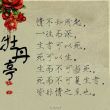 牡丹亭
情不知所起，
一往而深。
生者可以死，
死可以生。
生而不可与死，
死而不可复生者，
皆非情之至也。